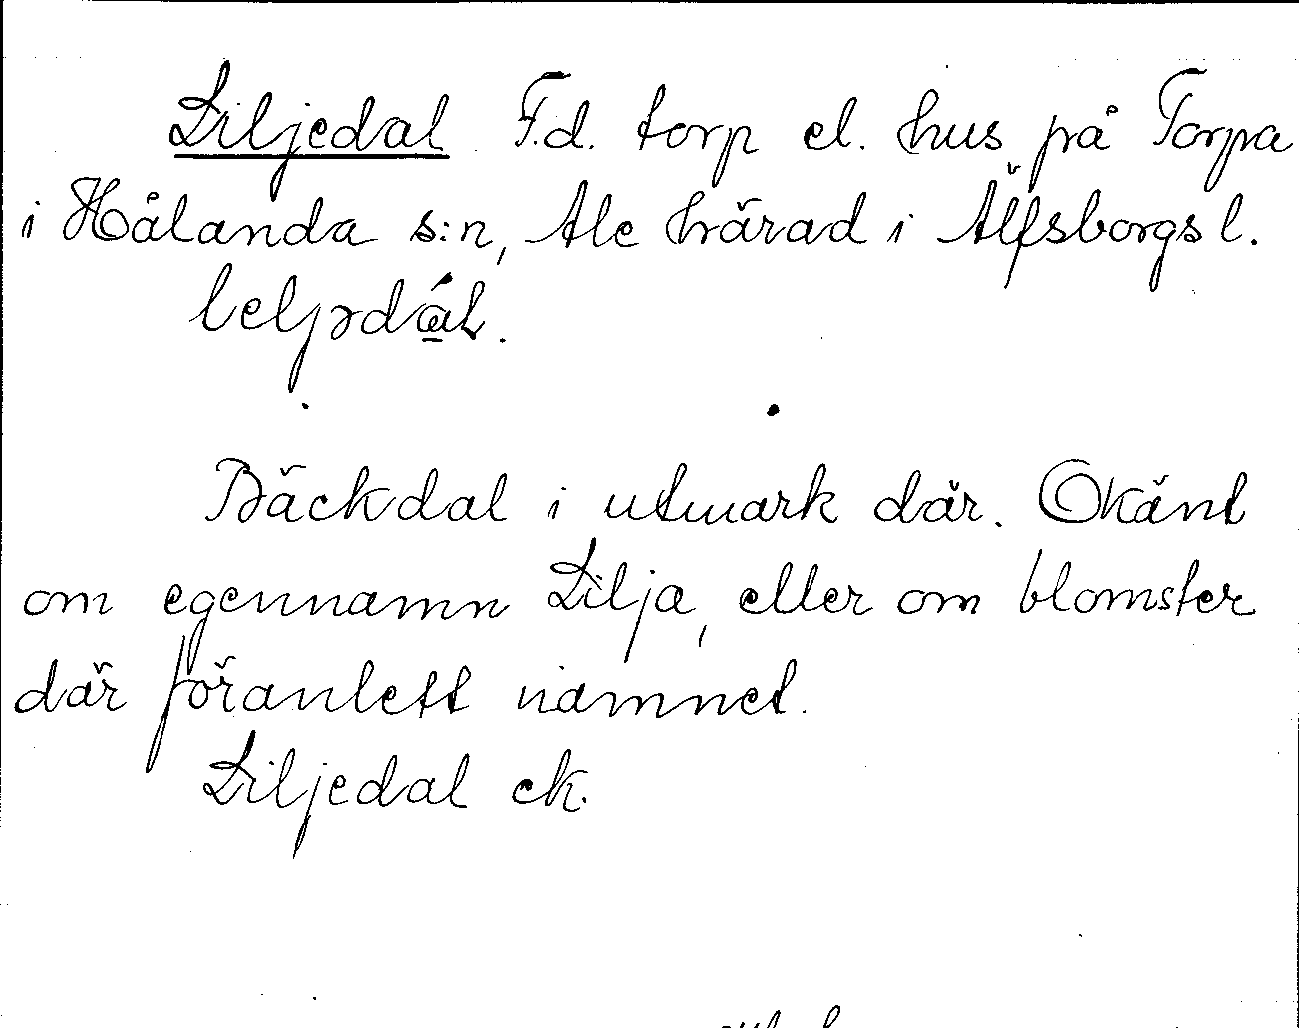 Liljedal F.d. torp el. hus på Torpa
i Hålanda s:n, Ale härad i Älfsborgs l.
Bäckdal i utmark där. Okänt
om egennamn Lilja, eller om blomster
där föranlett namnet.
Liljedal ek.